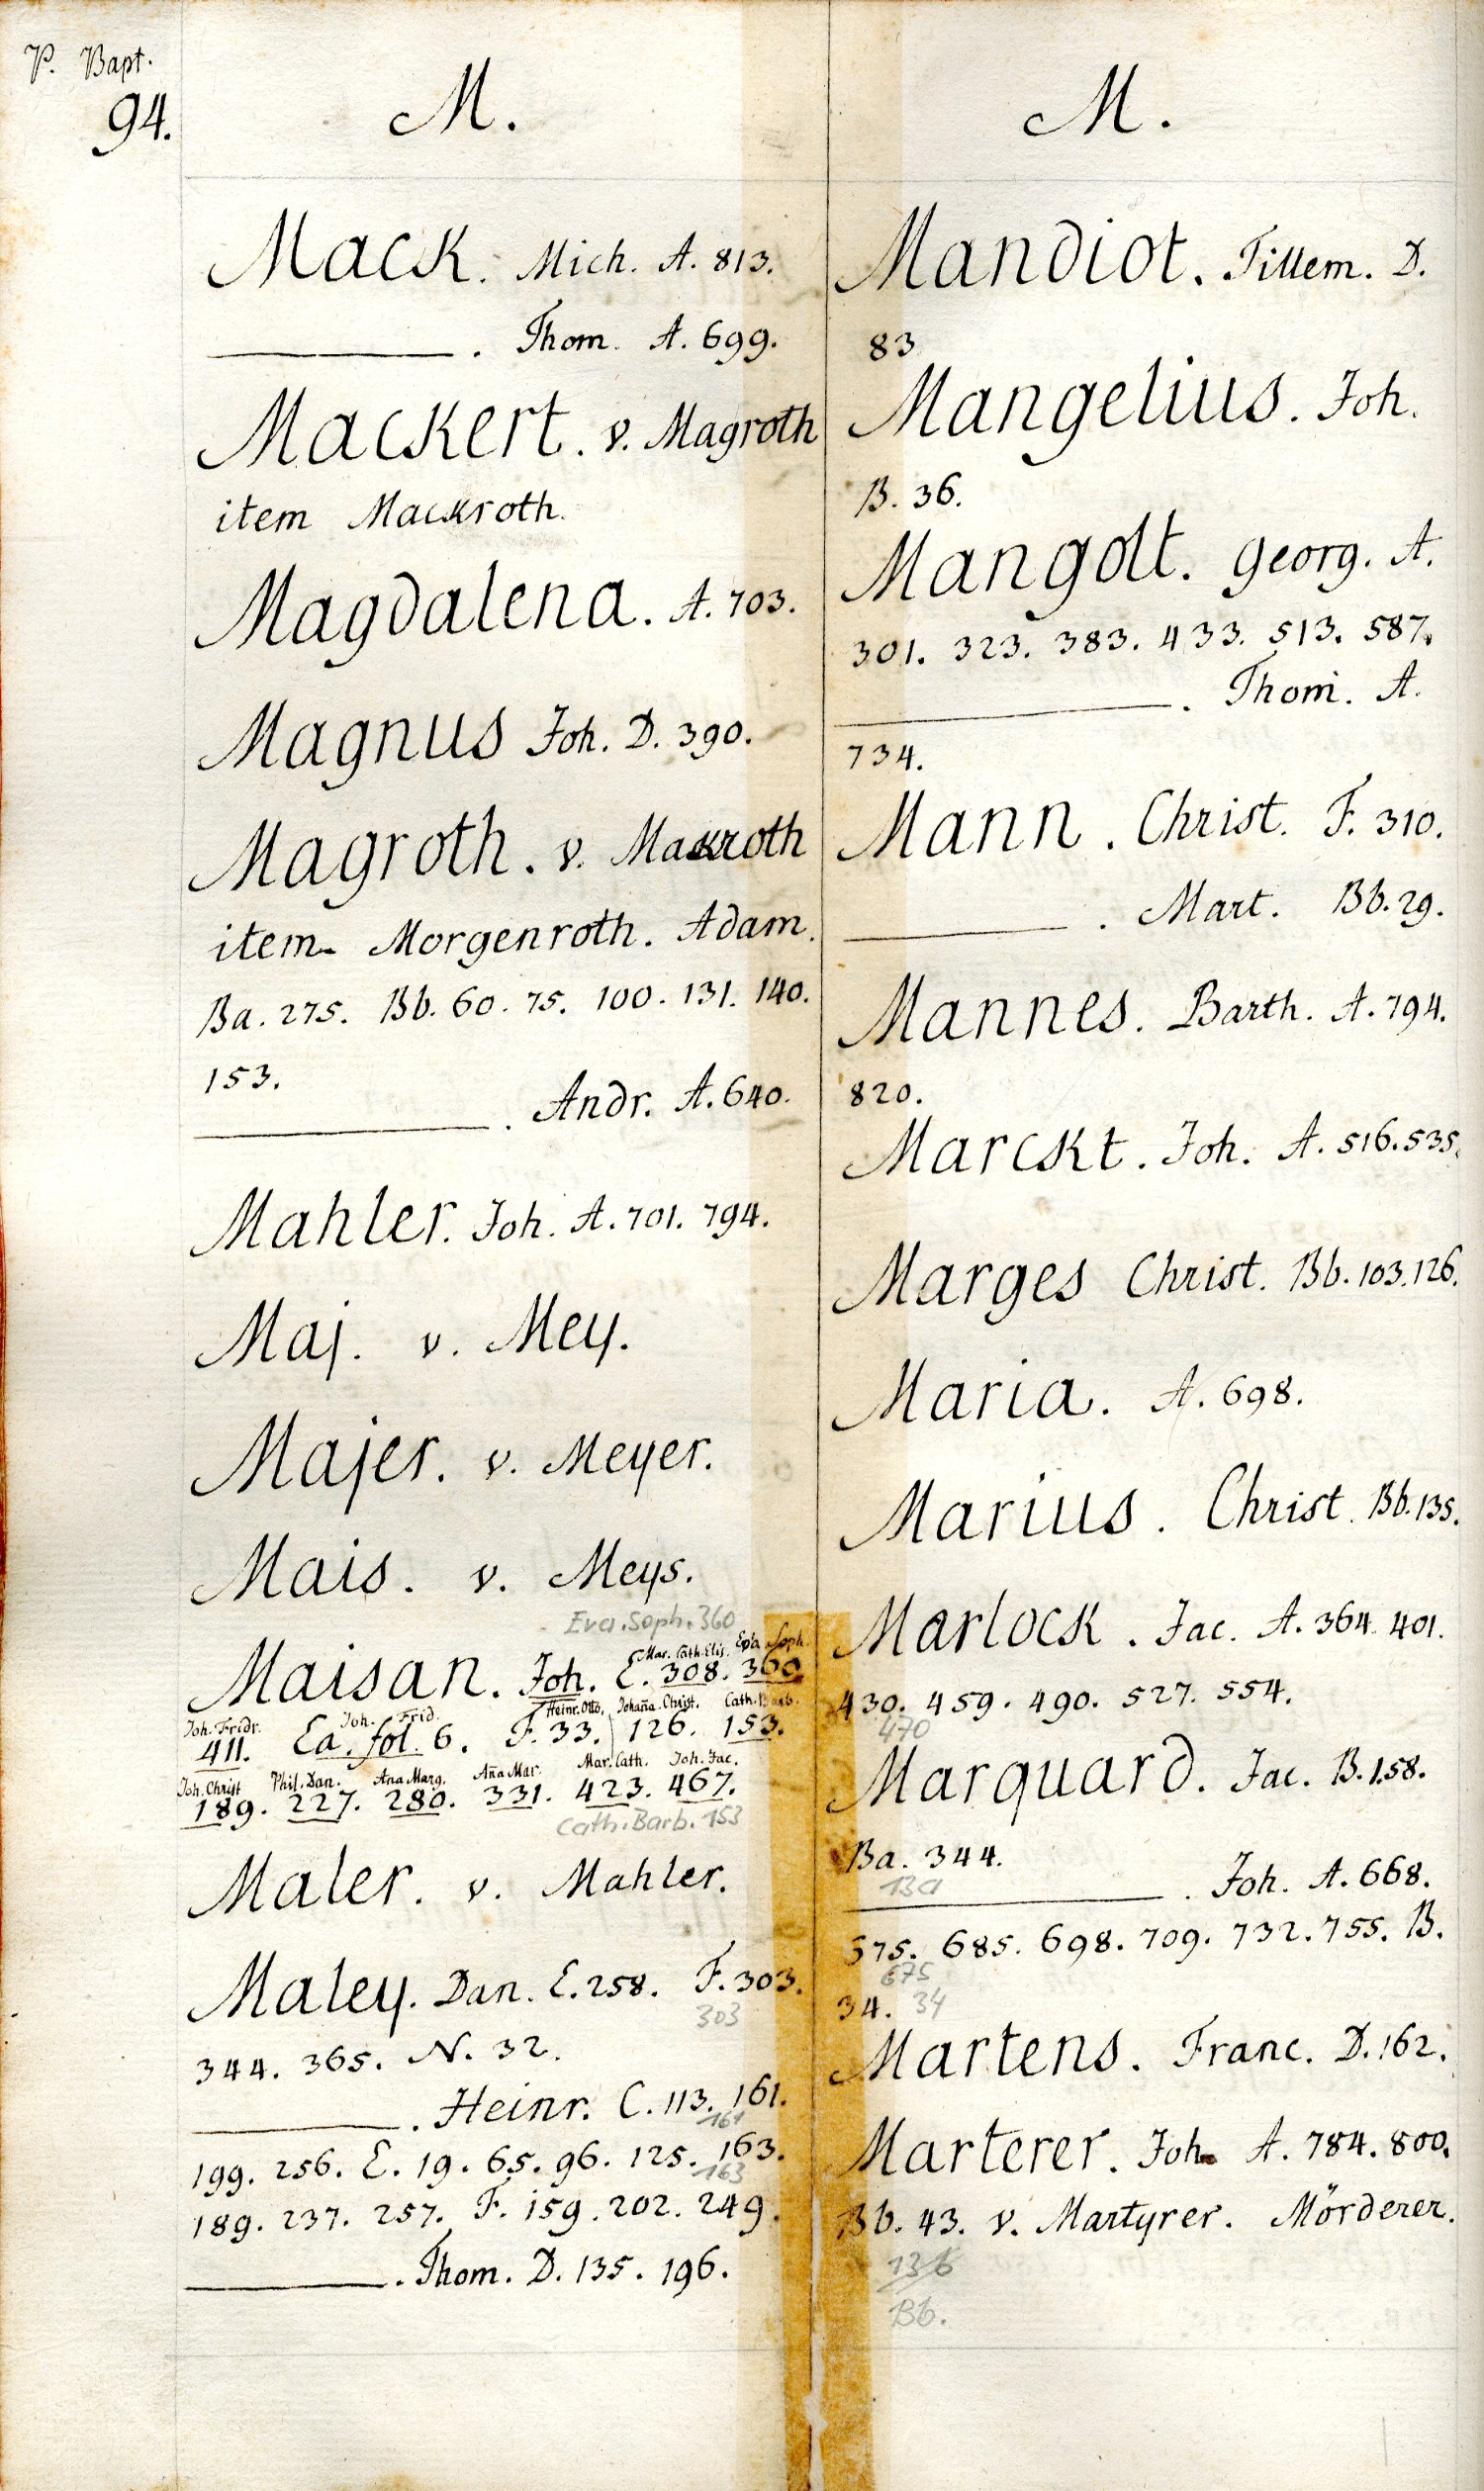 P. Bapt.
94.
M.
Mack. Mich. A. 813.
———. Thom. A. 699.
Mackert. v. Magroth
item Mackroth.
Magdalena. A. 703.
Magnus Joh. D. 390.
Magroth. v. Mackroth
item Morgenroth. Adam.
Ba. 275. Bb. 60. 75. 100. 131. 140.
153.
———. Andr. A. 640.
Mahler. Joh. A. 701. 794.
Maj. v. Mey.
Majer. v. Meyer.
Mais. v. Meys.
Eva. Soph. 360
Mar. Cath. Elis. Eva Soph.
Maisan. Joh. E. 308. 360.
Joh. Fridr. Joh. Frid. Heinr. Otto. Johaña. Christ. Cath. Barb.
411. Ea. fol. 6. F. 33. 126. 153.
Joh. Christ Phil. Dan. Ana Marg. Aña Mar. Mar. Cath. Joh. Jac.
189. 227. 280. 331. 423. 467.
Cath. Barb. 153
Maler. v. Mahler.
Maley. Dan. E. 258. F. 303.
303
344. 365. N. 32.
———. Heinr. C. 113. 161.
161
199. 256. E. 19. 65. 96. 125. 163.
163
189. 237. 257. F. 159. 202. 249.
———. Thom. D. 135. 196.
M.
Mandiot. Tillem. D.
83
Mangelius. Joh.
B. 36.
Mangolt. Georg. A.
301. 323. 383. 433. 513. 587.
———. Thom. A.
734.
Mann. Christ. F. 310.
———. Mart. Bb. 29.
Mannes. Barth. A. 794.
820.
Marckt. Joh. A. 516. 535.
Marges Christ. Bb. 103. 126.
Maria. A. 698.
Marius. Christ. Bb. 135.
Marlock. Jac. A. 364. 401.
430. 459. 490. 527. 554.
470
Marquard. Jac. B. 158.
Ba. 344.
———. Joh. A. 668.
675. 685. 698. 709. 732. 755. B.
675
34. 34
Martens. Franc. D. 162.
Marterer. Joh. A. 784. 800.
Bb. 43. v. Martyrer. Mörderer.
136
Bb.